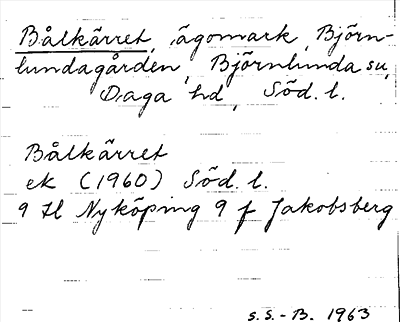 Bålkärret, ägomark, Björn-
lundagården, Björnlunda su,
Daga hd, Söd. l.
Bålkärret
ek (1960) Söd. l.
9 H Nyköping 9 f Jakobsberg
S.S.-B. 1963